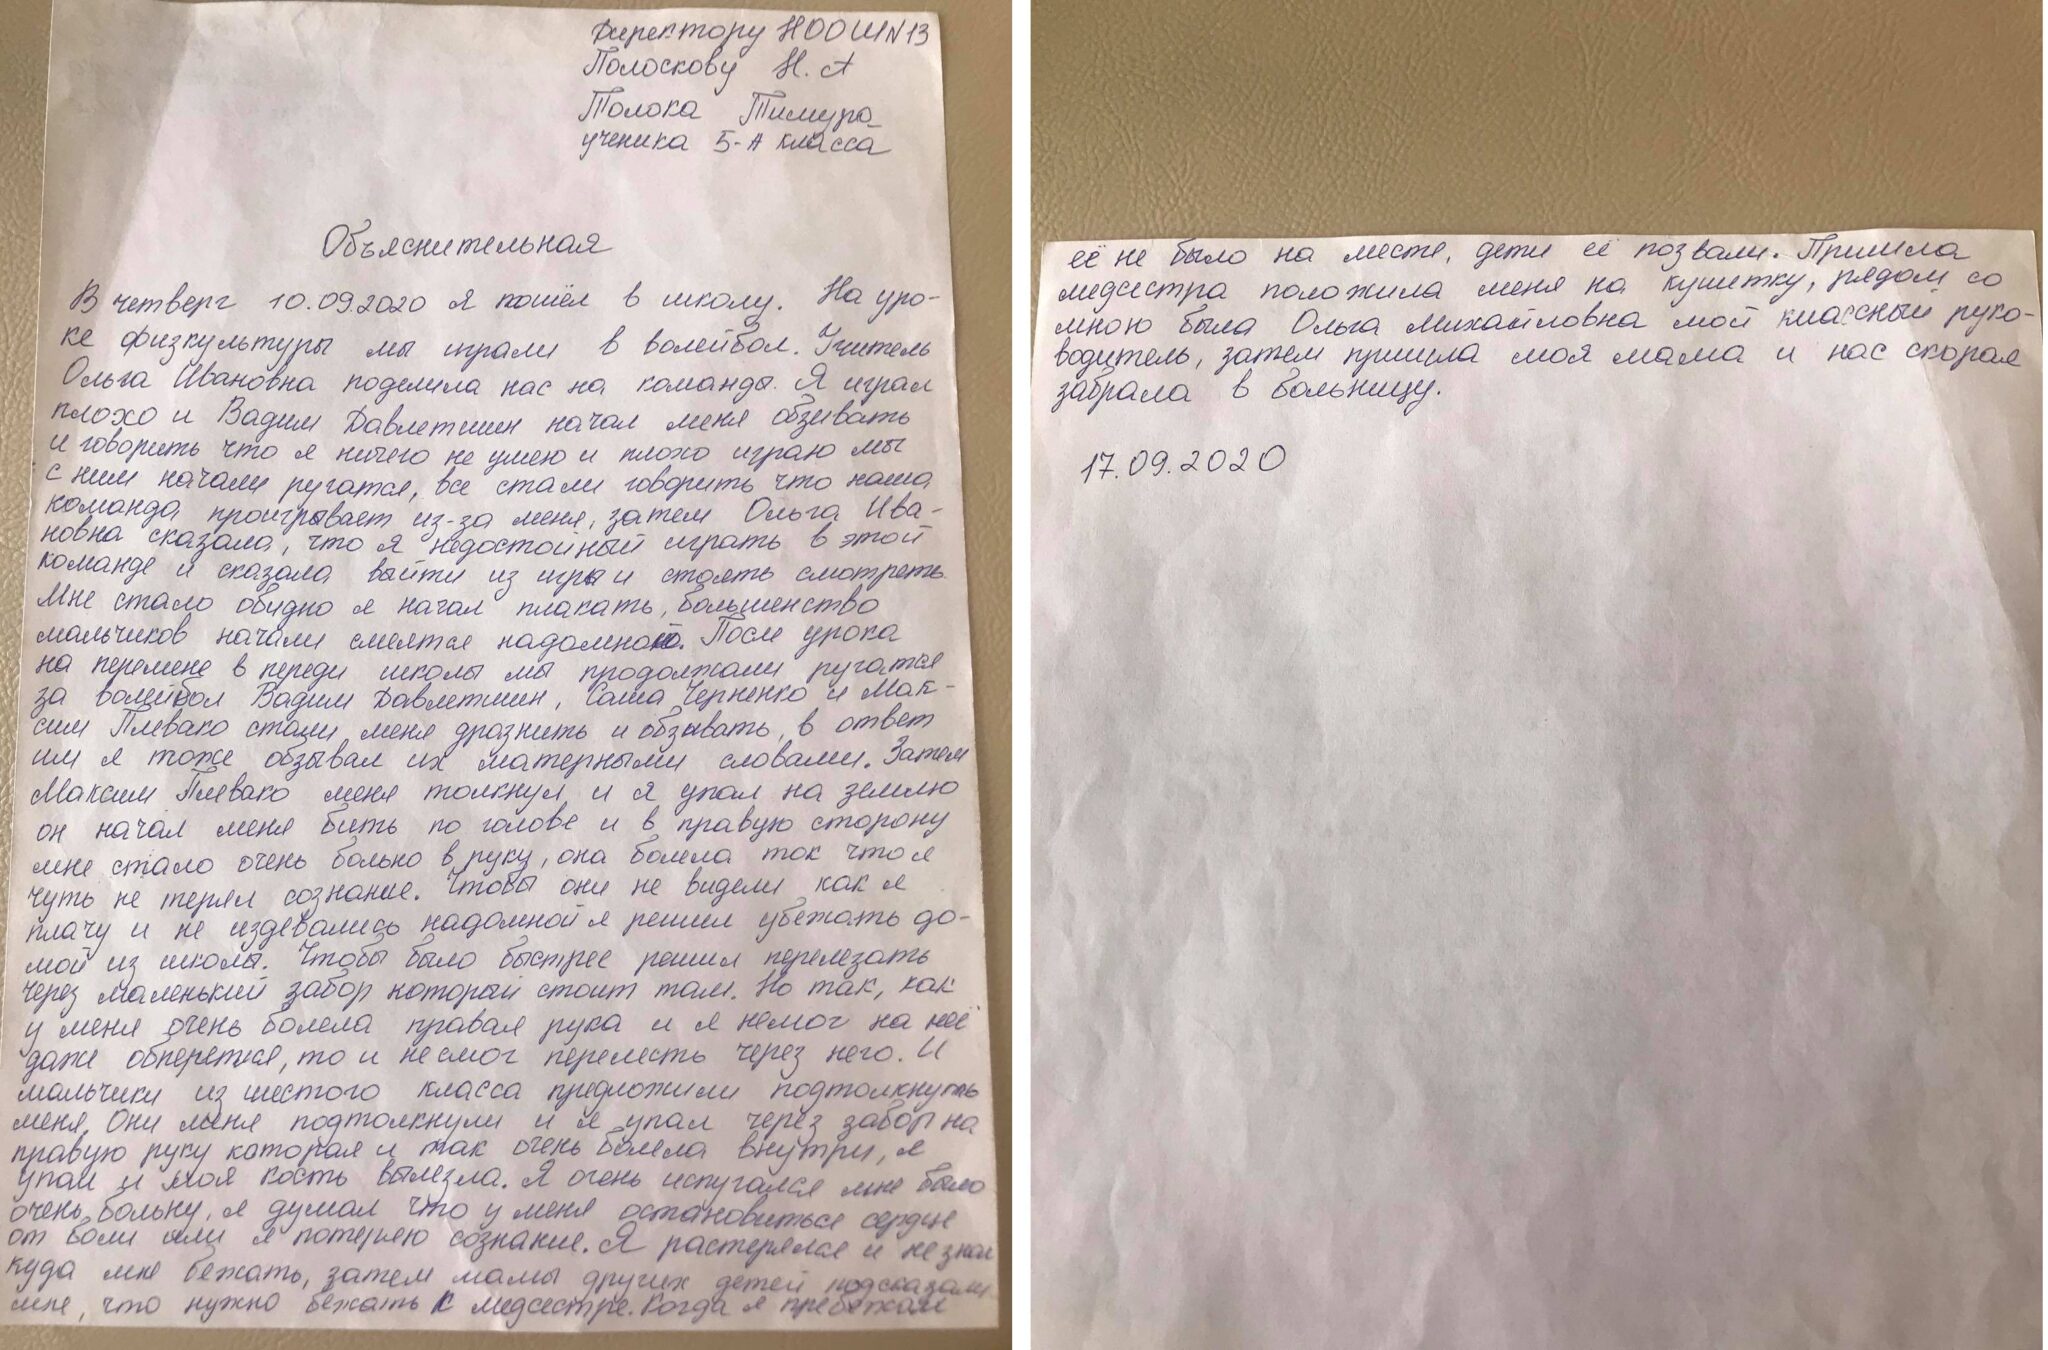 Директору НООШ№13
Полоскову Н. А
Толока Тимура
ученика 5-А класса
Объяснительная
В четверг 10.09.2020 я пошёл в школу. На уро-
ке физкультуры мы играли в волейбол. Учитель
Ольга Ивановна поделила нас на команды. Я играл
плохо и Вадим Давлетшин начал меня обзывать
и говорить что я ничего не умею и плохо играю мы
с ним начали ругатся, все стали говорить что наша
команда проигрывает из-за меня, затем Ольга Ива-
новна сказала, что я недостойный играть в этой
команде и сказала выйти из игры и стоять смотреть.
Мне стало обидно я начал плакать, большенство
мальчиков начали смеятся надомною. После урока
на перемене в переди школы мы продолжали ругатся
за волейбол Вадим Давлетшин, Саша Черненко и Мак-
сим Плевако стали меня дразнить и обзывать, в ответ
им я тоже обзывал их матерными словами. Затем
Максим Плевако меня толкнул и я упал на землю
он начал меня бить по голове и в правую сторону
мне стало очень больно в руку, она болела так что я
чуть не терял сознание. Чтобы они не видели как я
плачу и не издевались надомной я решил убежать до-
мой из школы. Чтобы было быстрее решил перелезать
через маленький забор который стоит там. Но так, как
у меня очень болела правая рука и я немог на неё
даже обперется, то и не смог перелесть через него. И
мальчики из шестого класса предложили подтолкнуть
меня. Они меня подтолкнули и я упал через забор на
правую руку которая и так очень болела внутри, я
упал и моя кость вылезла. Я очень испугался мне было
очень больну, я думал что у меня остановиться сердце
от боли или я потеряю сознание. Я растерялся и не знал
куда мне бежать, затем мамы других детей подсказали
мне, что нужно бежать к медсестре. Когда я пребежал
её не было на месте, дети её позвали. Пришла
медсестра положила меня на кушетку, рядом со
мною была Ольга Михайловна мой классный руко-
водитель, затем пришла моя мама и нас скорая
забрала в больницу.
17.09.2020